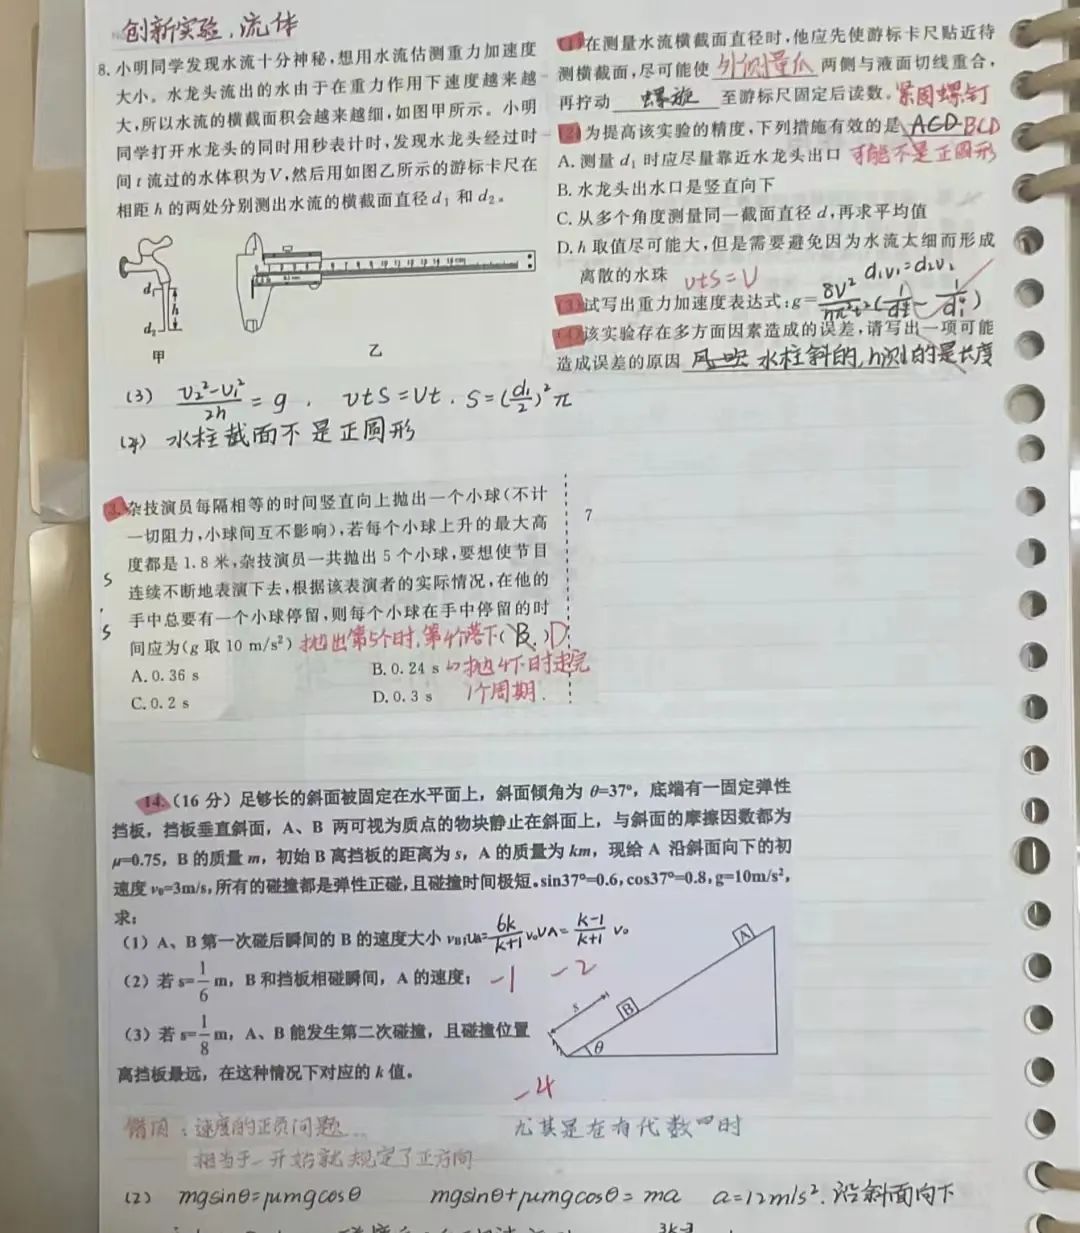 创新实验,流体
8. 小明同学发现水流十分神秘,想用水流估测重力加速度
大小。水龙头流出的水由于在重力作用下速度越来越
大,所以水流的横截面积会越来越细,如图甲所示。小明
同学打开水龙头的同时用秒表计时,发现水龙头经过时
间 t 流过的水体积为V,然后用如图乙所示的游标卡尺在
相距 h 的两处分别测出水流的横截面直径 d₁ 和 d₂。
d₁
h
d₂
甲
乙
(1)在测量水流横截面直径时,他应先使游标卡尺贴近待
测横截面,尽可能使 外测量爪 两侧与液面切线重合,
再拧动 螺旋 至游标尺固定后读数。紧固螺钉
(2)为提高该实验的精度,下列措施有效的是 ACD BCD
A. 测量 d₁ 时应尽量靠近水龙头出口 可能不是正圆形
B. 水龙头出水口是竖直向下
C. 从多个角度测量同一截面直径 d,再求平均值
D. h 取值尽可能大,但是需要避免因为水流太细而形成
离散的水珠 vtS=V d₁v₁=d₂v₂
(3)试写出重力加速度表达式:g=8V²/hπ²t²(1/d₂⁴-1/d₁⁴)
(4)该实验存在多方面因素造成的误差,请写出一项可能
造成误差的原因 风吹 水柱斜的,h测的是长度
(3) v₂²-v₁²/2h=g, vtS=Vt. S=(d₁/2)²π
(4) 水柱截面不是正圆形
3. 杂技演员每隔相等的时间竖直向上抛出一个小球(不计
一切阻力,小球间互不影响),若每个小球上升的最大高
度都是 1.8 米,杂技演员一共抛出 5 个小球,要想使节目
连续不断地表演下去,根据该表演者的实际情况,在他的
手中总要有一个小球停留,则每个小球在手中停留的时
间应为(g 取 10 m/s²) 抛出第5个时,第1个落下( B. )D
A. 0.36 s B. 0.24 s 抛4个时走完
C. 0.2 s D. 0.3 s 1个周期.
7
5
5
14.(16 分)足够长的斜面被固定在水平面上,斜面倾角为 θ=37°,底端有一固定弹性
挡板,挡板垂直斜面,A、B 两可视为质点的物块静止在斜面上,与斜面的摩擦因数都为
μ=0.75,B 的质量 m,初始 B 离挡板的距离为 s,A 的质量为 km,现给 A 沿斜面向下的初
速度 v₀=3m/s,所有的碰撞都是弹性正碰,且碰撞时间极短。sin37°=0.6,cos37°=0.8,g=10m/s²,
求:
(1)A、B 第一次碰后瞬间的 B 的速度大小 vB₁ 6k/k+1 v₀ vA=k-1/k+1 v₀
(2)若 s=1/6 m,B 和挡板相碰瞬间,A 的速度; -1 -2
(3)若 s=1/8 m,A、B 能发生第二次碰撞,且碰撞位置
离挡板最远,在这种情况下对应的 k 值。
A
B
s
θ
-4
错因:速度的正负问题 尤其是在有代数四时
相当于一开始就规定了正方向
(2) mgsinθ=μmgcosθ mgsinθ+μmgcosθ=ma a=12m/s².沿斜面向下